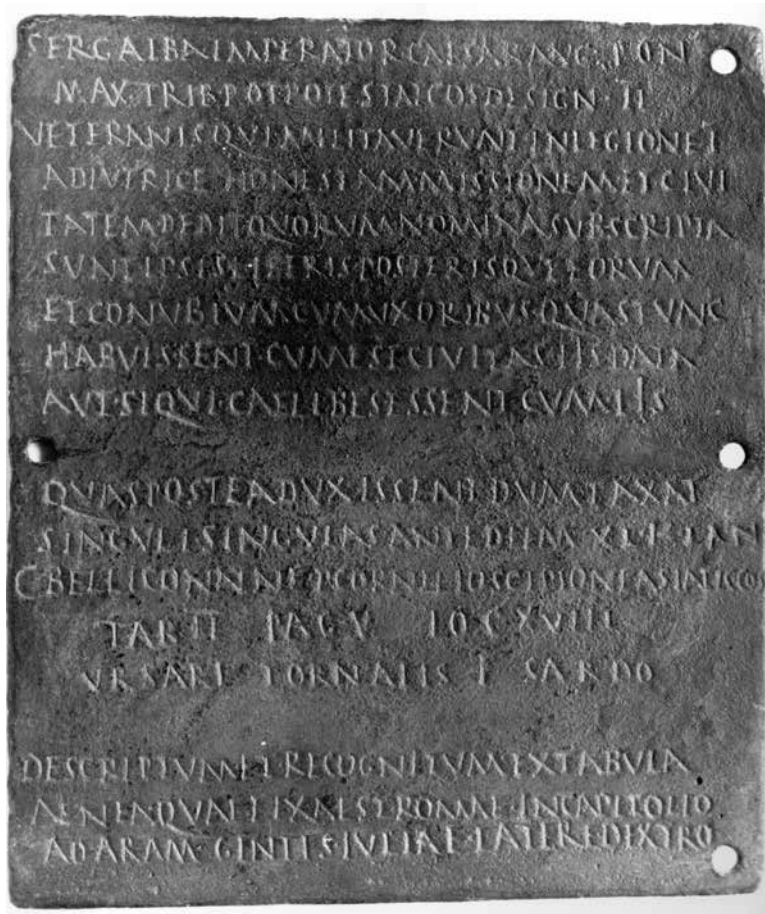 SER GALBA IMPERATOR CAESAR AVG PON
MAX TRIB POT POTESTAT COS DESIGN · II
VETERANIS QVI MILITAVERVNT IN LEGIONE I
ADIVTRICE HONESTAM MISSIONEM ET CIVI
TATEM DEDIT QVORVM NOMINA SVBSCRIPTA
SVNT IPSIS LIBERIS POSTERISQVE EORVM
ET CONVBIVM CVM VXORIBVS QVAS TVNC
HABVISSENT CVM EST CIVITAS IIS DATA
AVT SI QVI CAELIBES ESSENT CVM IIS
QVAS POSTEA DVXISSENT DVMTAXAT
SINGVLI SINGVLAS ANTE DIEM XI K IAN
C BELLICO P CORNELIO SCIPIONE COS
TAB II PAG V LOC XVIII
VRSARI TORNALIS F SARDO
DESCRIPTVM ET RECOGNITVM EX TABVLA
AENEA QVAE FIXA EST ROMAE IN CAPITOLIO
AD ARAM GENTIS IVLIAE LATERE DEXTRO